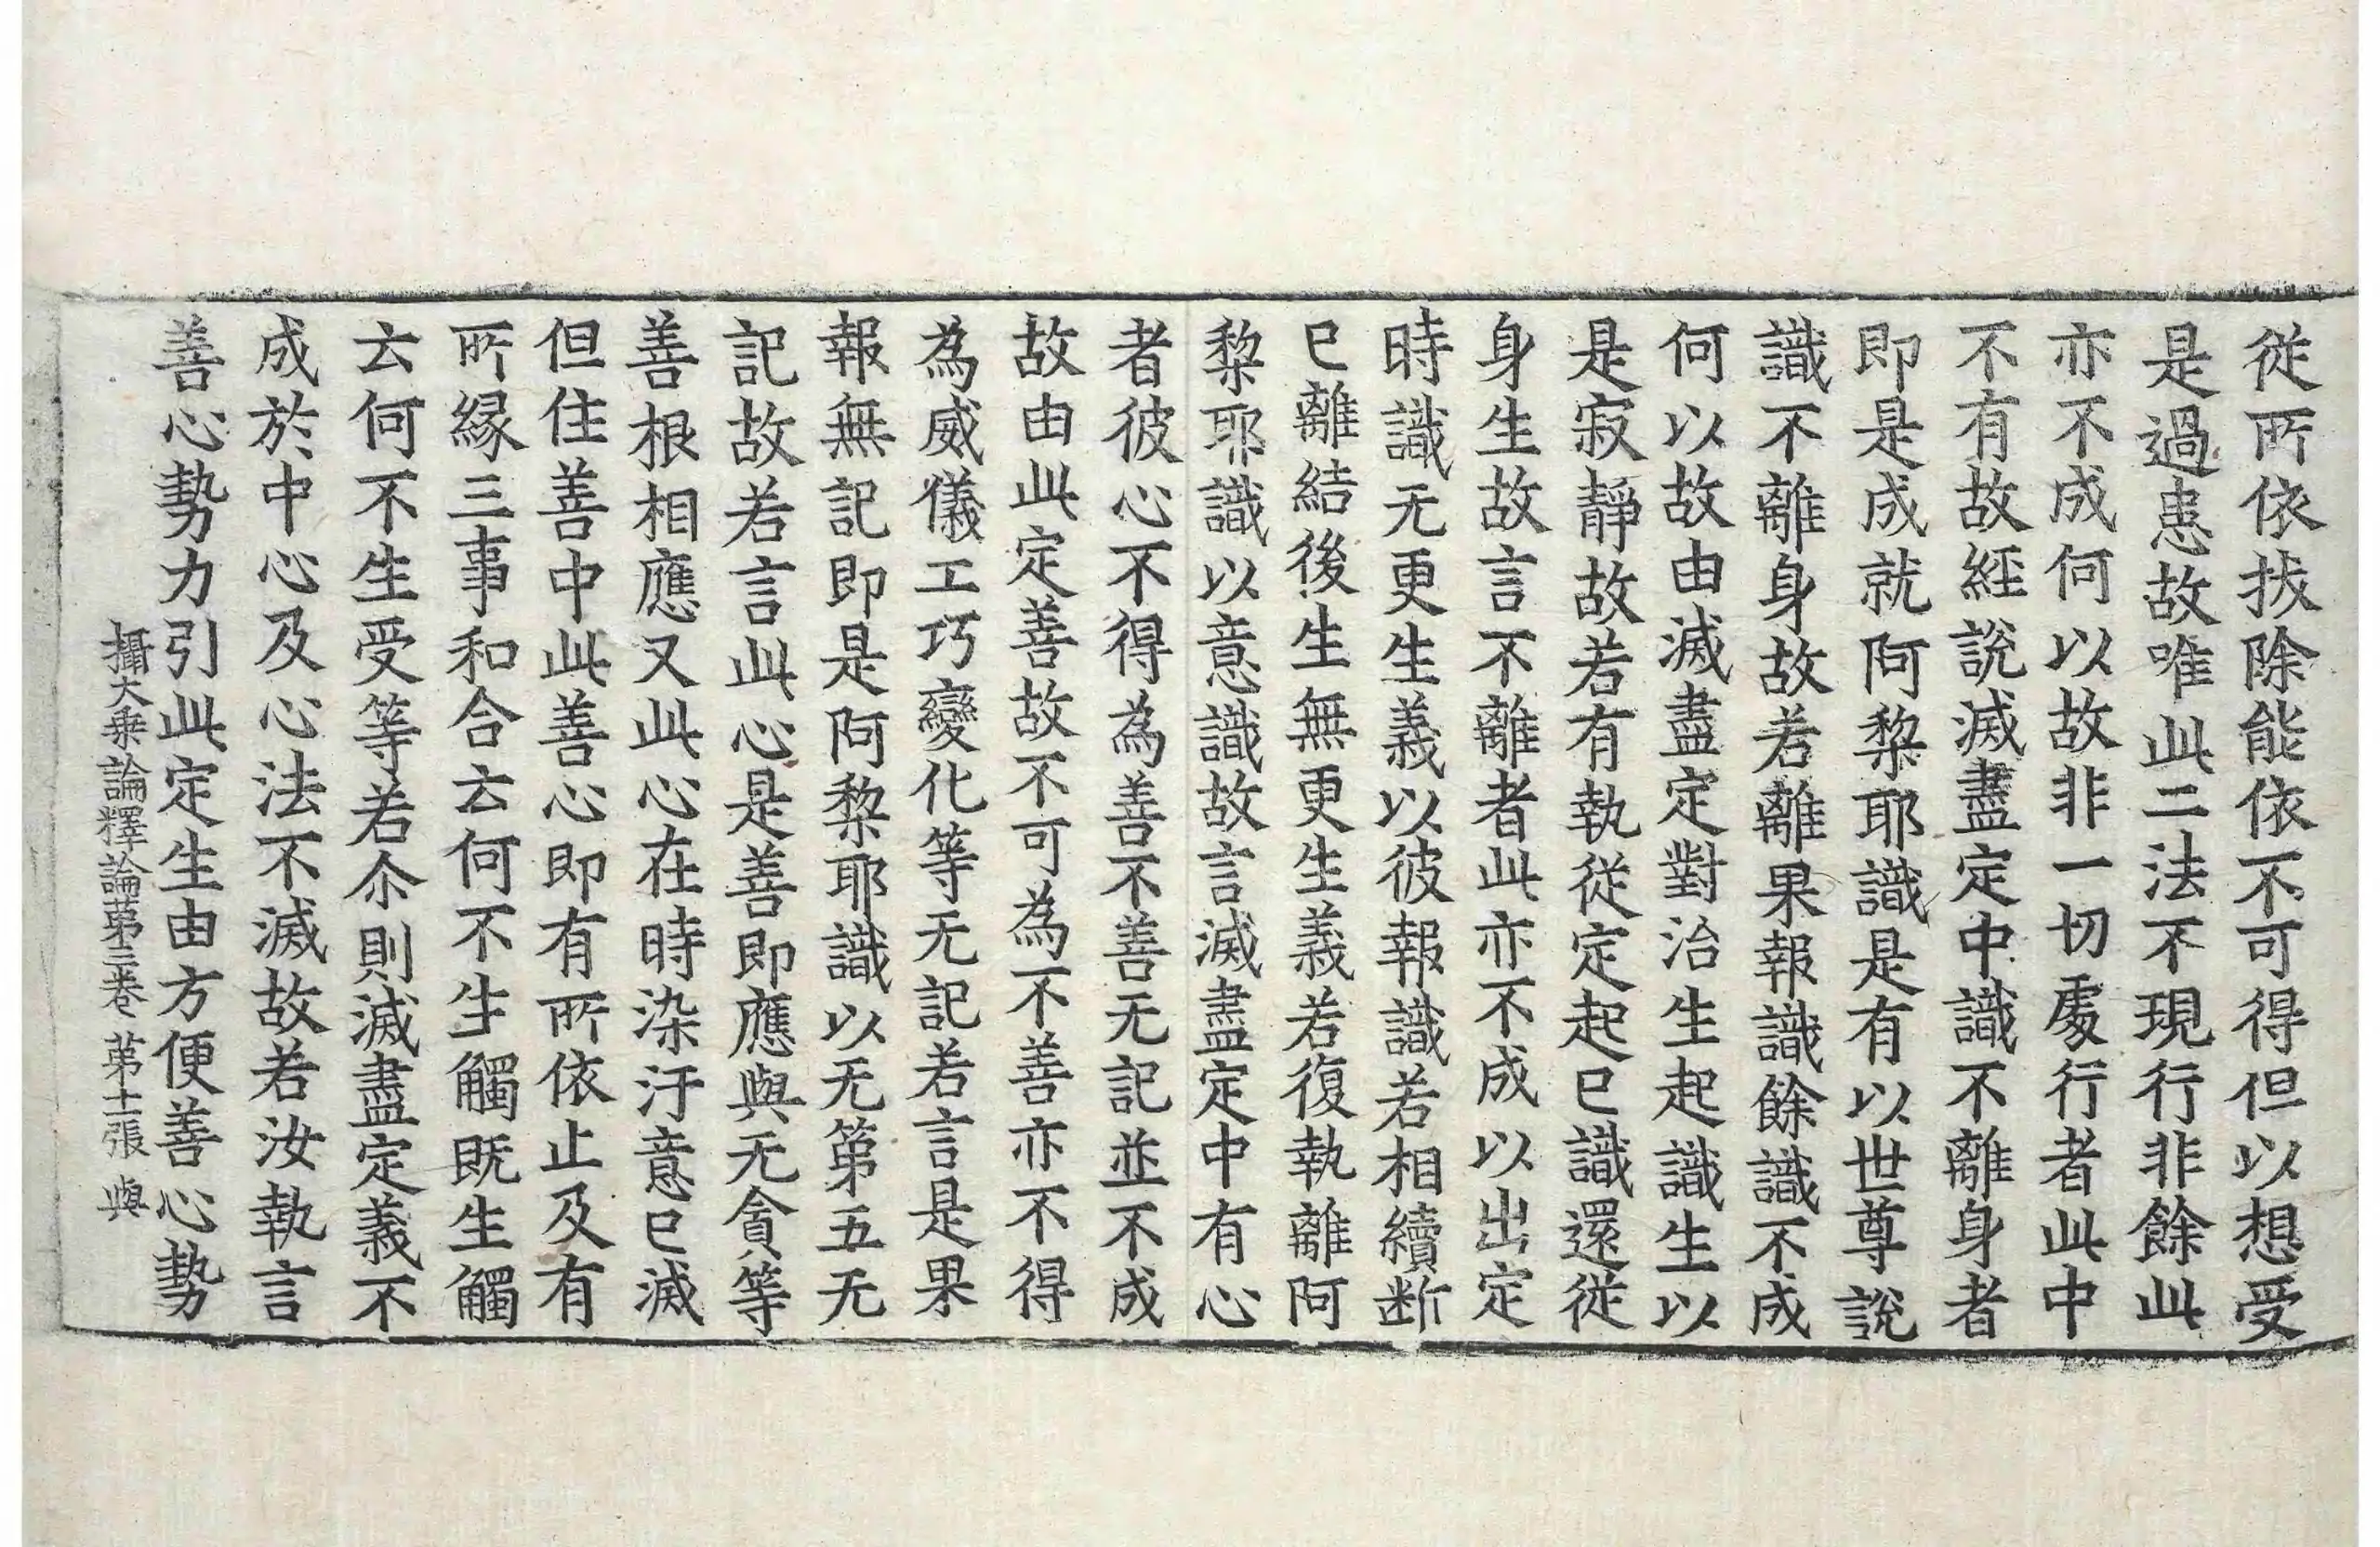 從所依拔除能依不可得但以想受
是過患故唯此二法不現行非餘此
亦不成何以故非一切處行者此中
不有故經說滅盡定中識不離身者
即是成就阿黎耶識是有以世尊說
識不離身故若離果報識餘識不成
何以故由滅盡定對治生起識生以
是寂靜故若有執從定起已識還從
身生故言不離者此亦不成以出定
時識无更生義以彼報識若相續断
已離結後生無更生義若復執離阿
黎耶識以意識故言滅盡定中有心
者彼心不得為善不善无記並不成
故由此定善故不可為不善亦不得
為威儀工巧變化等无記若言是果
報無記即是阿黎耶識以无第五无
記故若言此心是善即應與无貪等
善根相應又此心在時染汙意已滅
但住善中此善心即有所依止及有
所緣三事和合云何不生觸既生觸
云何不生受等若尒則滅盡定義不
成於中心及心法不滅故若汝執言
善心勢力引此定生由方便善心勢
攝大乘論釋論第三卷 第十二張 與